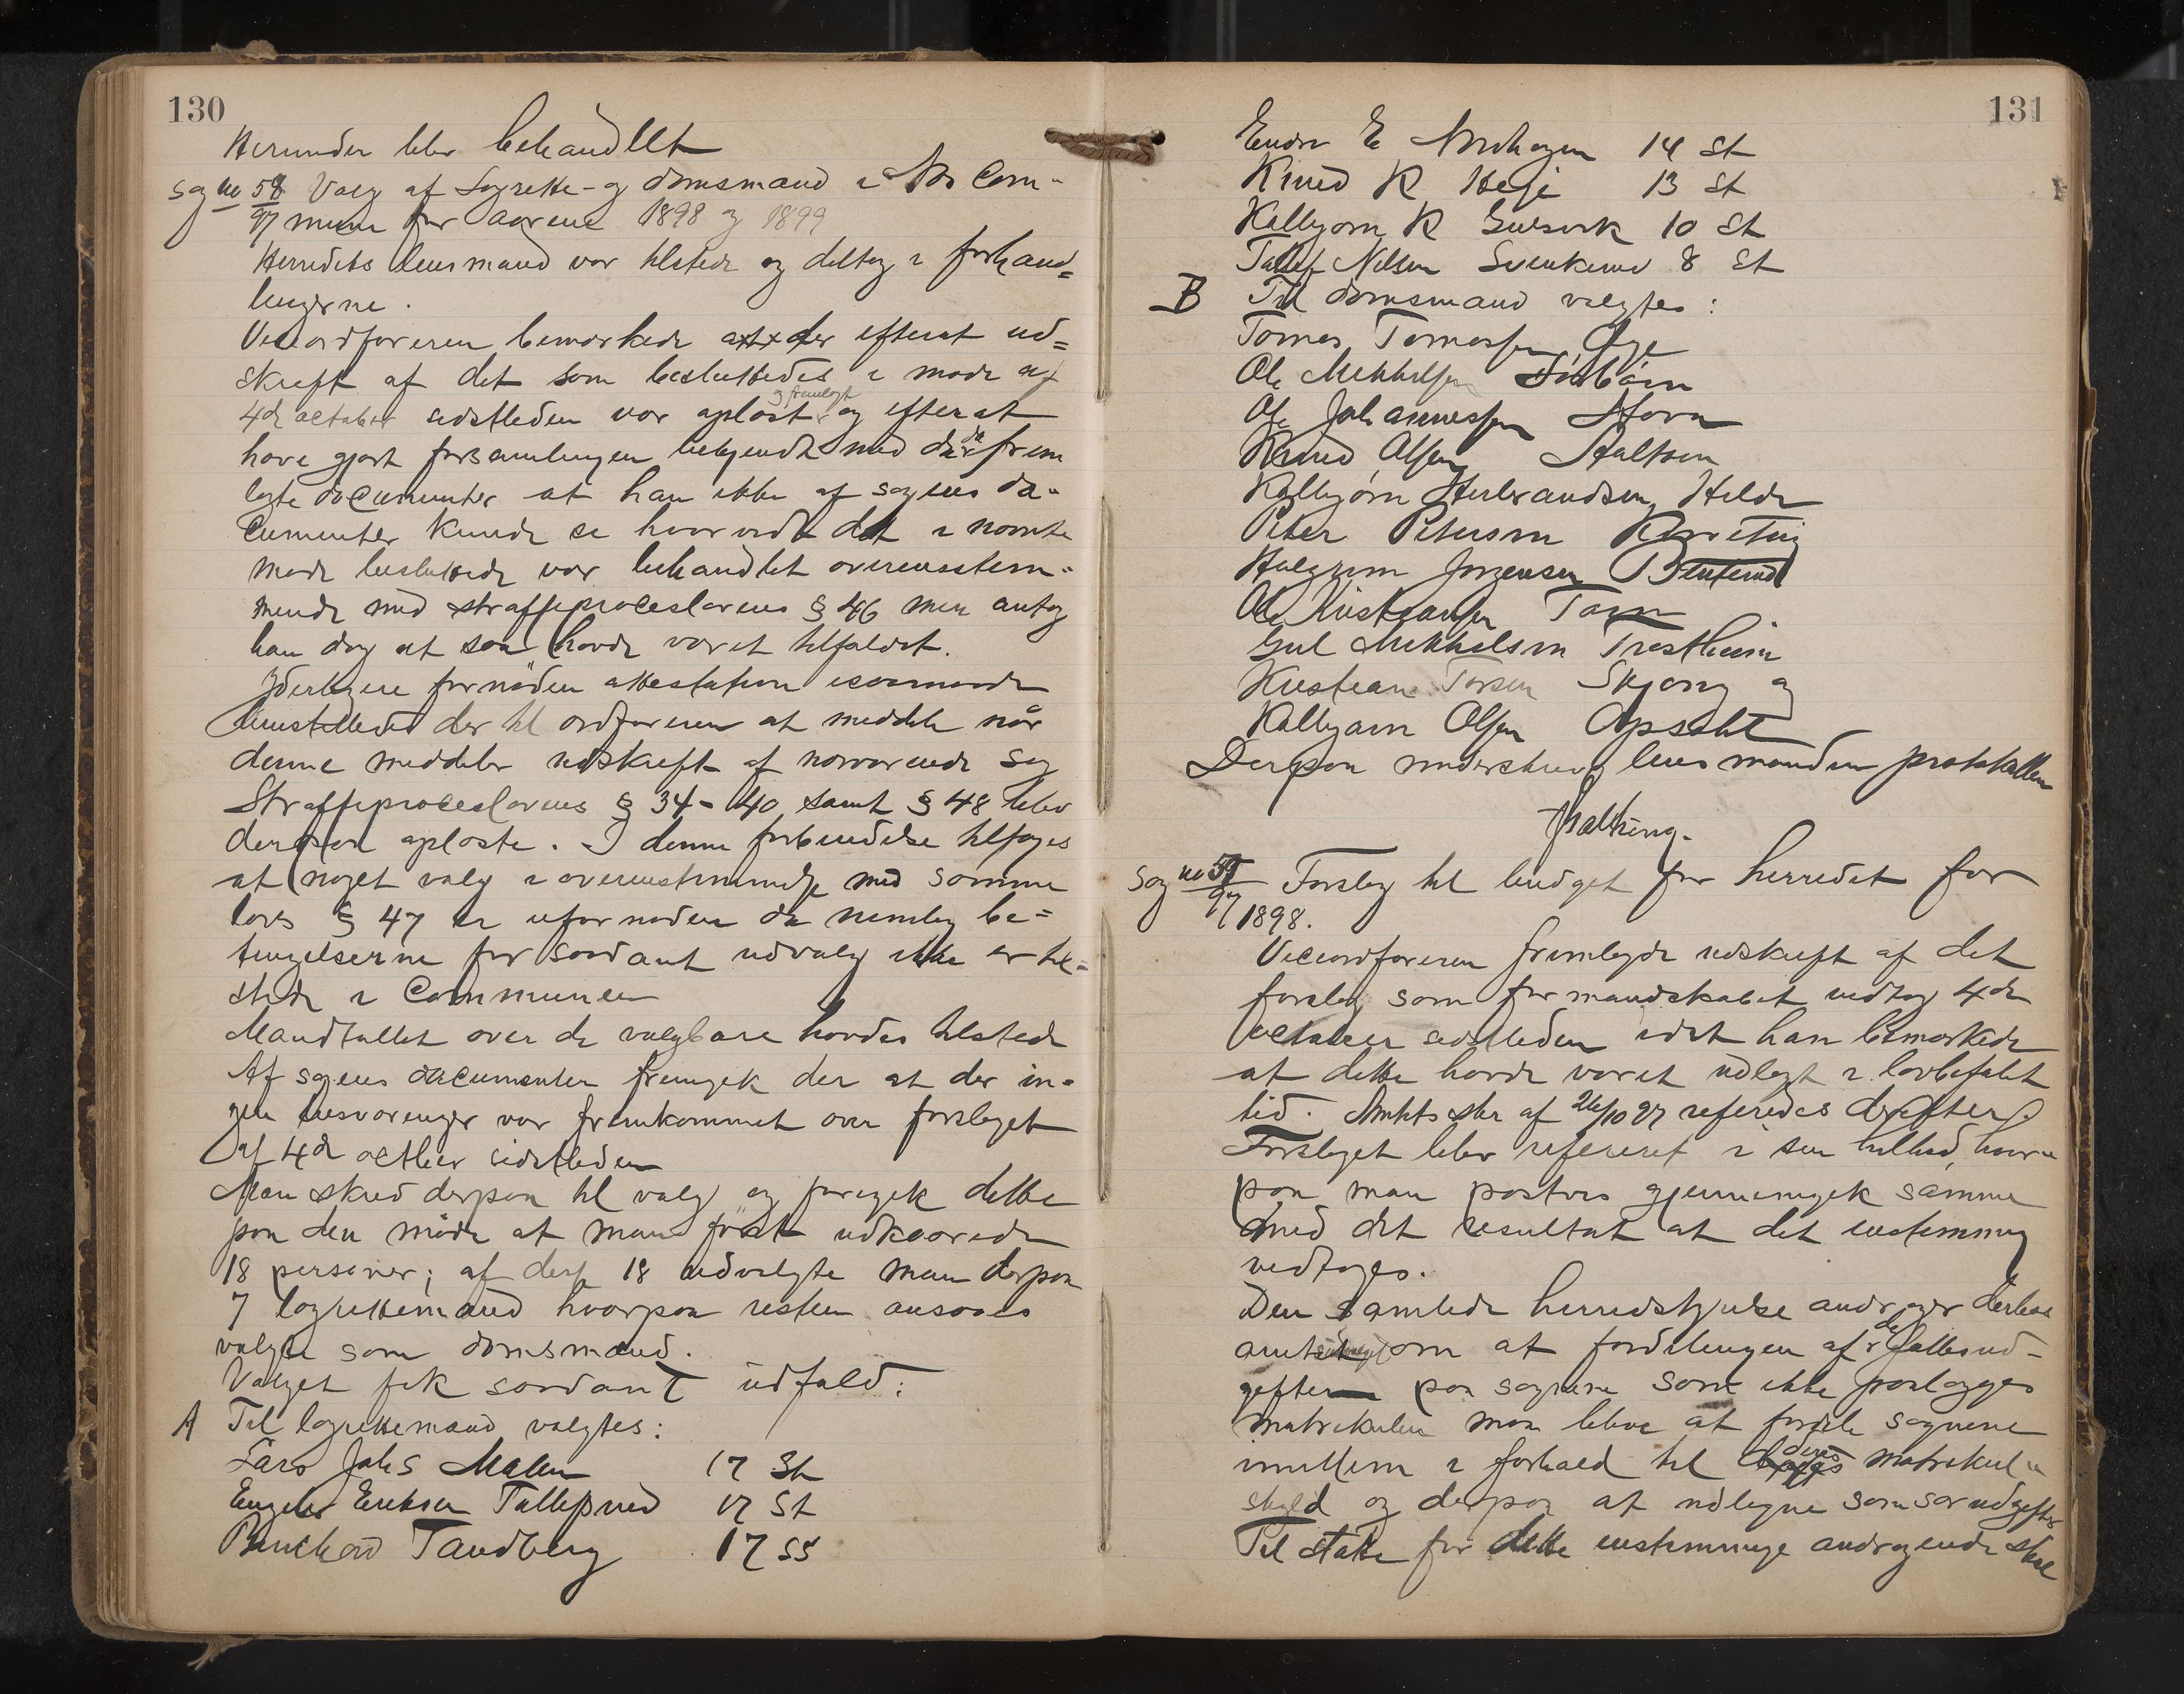 130
Herunder blev behandllt
sag no 58/97 Valg af Lagrette- og domsmænd i Aas Com-
mune for aarene 1898 og 1899
Herredets lensmand var tilstede og deltog i forhand=
lingerne.
Viceordføreren bemærkede at der efterat ud=
skrift af det som besluttedes i møde af
4de october sidstleden var oplæst og fremlagt og efterat
have gjort forsamlingen bekjendt med de frem
lagte documenter at han ikke af sagens do-
cumenter kunde se hvorvidt det i nævnte
møde besluttede var behandlet overensstem-
mende med straffeproceslovens § 46 men antog
han dog at saa havde været tilfældet.
Yderligere fornöden attestation isaamaade
henstilledes der til ordføreren at meddele når
denne meddeler udskrift af nærværende sag
Straffeproceslovens § 34-40 samt § 48 blev
derpaa oplæste. I denne forbindelse tilføjes
at noget valg i overensstemmelse med samme
lovs § 47 er ufornøden da nemlig be=
tingelserne for saadant udvalg ikke er til=
stede i Communen
Mandtallet over de valgbare havdes tilstede
Af sagens documenter fremgik der at der in-
gen besværinger var fremkommet over forslaget
af 4de octber sidstleden
Man skred derpaa til valg og foregik dette
paa den måde at mand først udkaarede
18 personer; af disse 18 udvalgte man derpaa
7 lagrettemænd hvorpaa resten ansaaes
valgte som domsmænd.
Valget fik saadant udfald:
A Til lagrettemænd valgtes:
Lars Johs Malen 17 St
Engebr Eriksen Tollefsrud 17 St
Burchard Tandberg 17 ss
131
Endre E 14 St
Knud R Hegi 13 St
Kolbjørn R 10 St
Tollef Nilsen Svenkerud 8 St
B Til domsmænd valgtes:
Tomas Tomassen
Ole Mikkelsen
Ole Johannessen
Knud Olsen
Kolbjørn Herbrandsen Hilde
Peter Petersen
Halgrim Jørgensen
Ole Kristiansen
Gul Mikkelsen Trostheim
Kristian Torsen Skjong og
Kolbjørn Olsen Opsaht
Derpaa underskrev lensmanden protokollen
sag no 59/97 Forslag til budget for herredet for
1898.
Viceordføreren fremlagde udskrift af det
forslag som formandskabet vedtog 4de
october sidstleden idet han bemærkede
at dette havde været udlagt i lovbefalet
tid. Amts skr af 26/10 97 refereredes derefter.
Forslaget blev refereret i sin helhed, hvor-
paa man postvis gjennemgik samme
med det resultat at det enstemmig
vedtoges.
Den samlede herredstyrelse andrager derhos
amtet om at fordelingen af de fællesud-
gifter paa sognene som ikke paalægges
matrikulen maa blive at fordele sognene
imellem i forhold til deres matrikul-
skyld og derpaa at udligne som særudgifter
Til støtte for dette enstemmige andragende skal